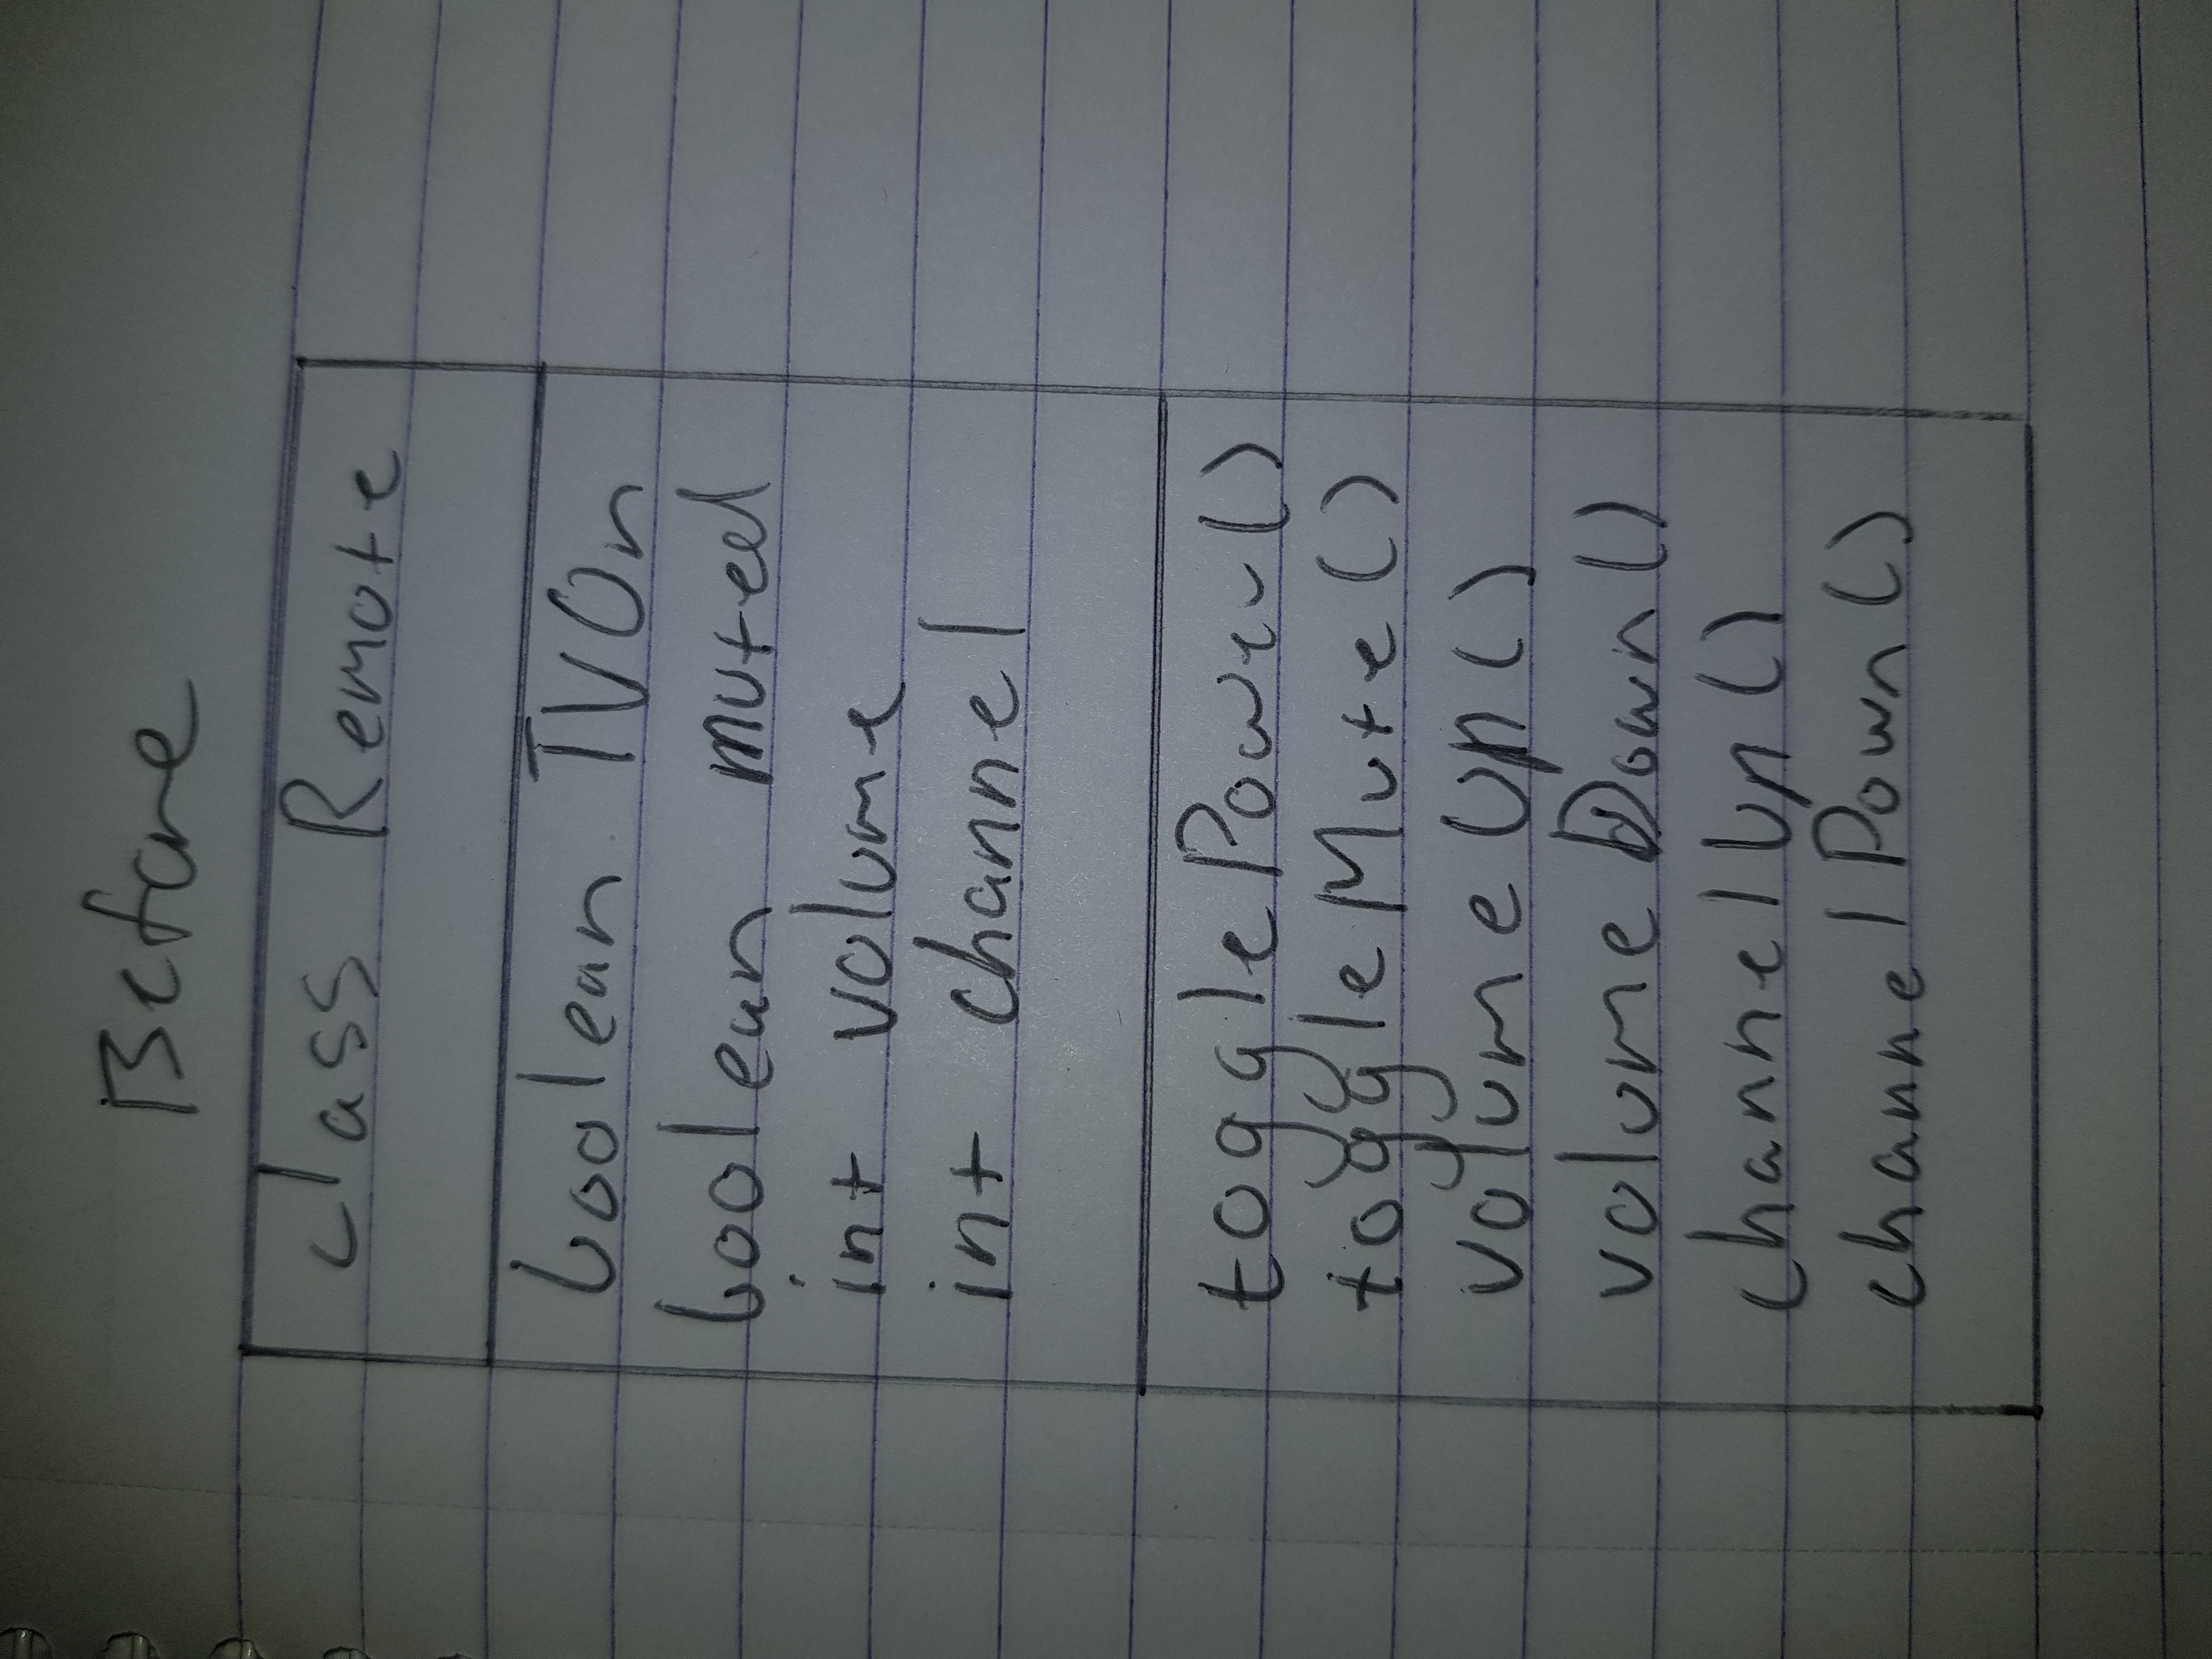 Before
class Remote
boolean TVOn
boolean muted
int volume
int channel
togglePower()
toggleMute()
volumeUp()
volumeDown()
channelUp()
channelDown()